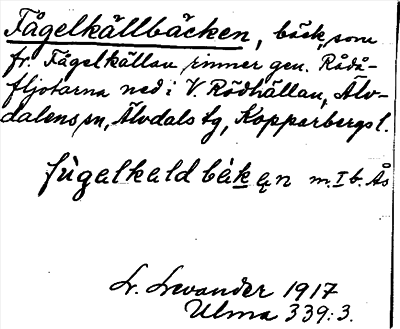 Fågelkällbäcken, bäck, som
fr. Fågelkällan rinner gen. Rådå-
fljotarna ned i V. Rödhällan, Älv-
dalens sn, Älvdals tg, Kopparbergs l.
fùgalkeldbèkęn m. I b. Ås
L. Levander 1917
Ulma 339:3.